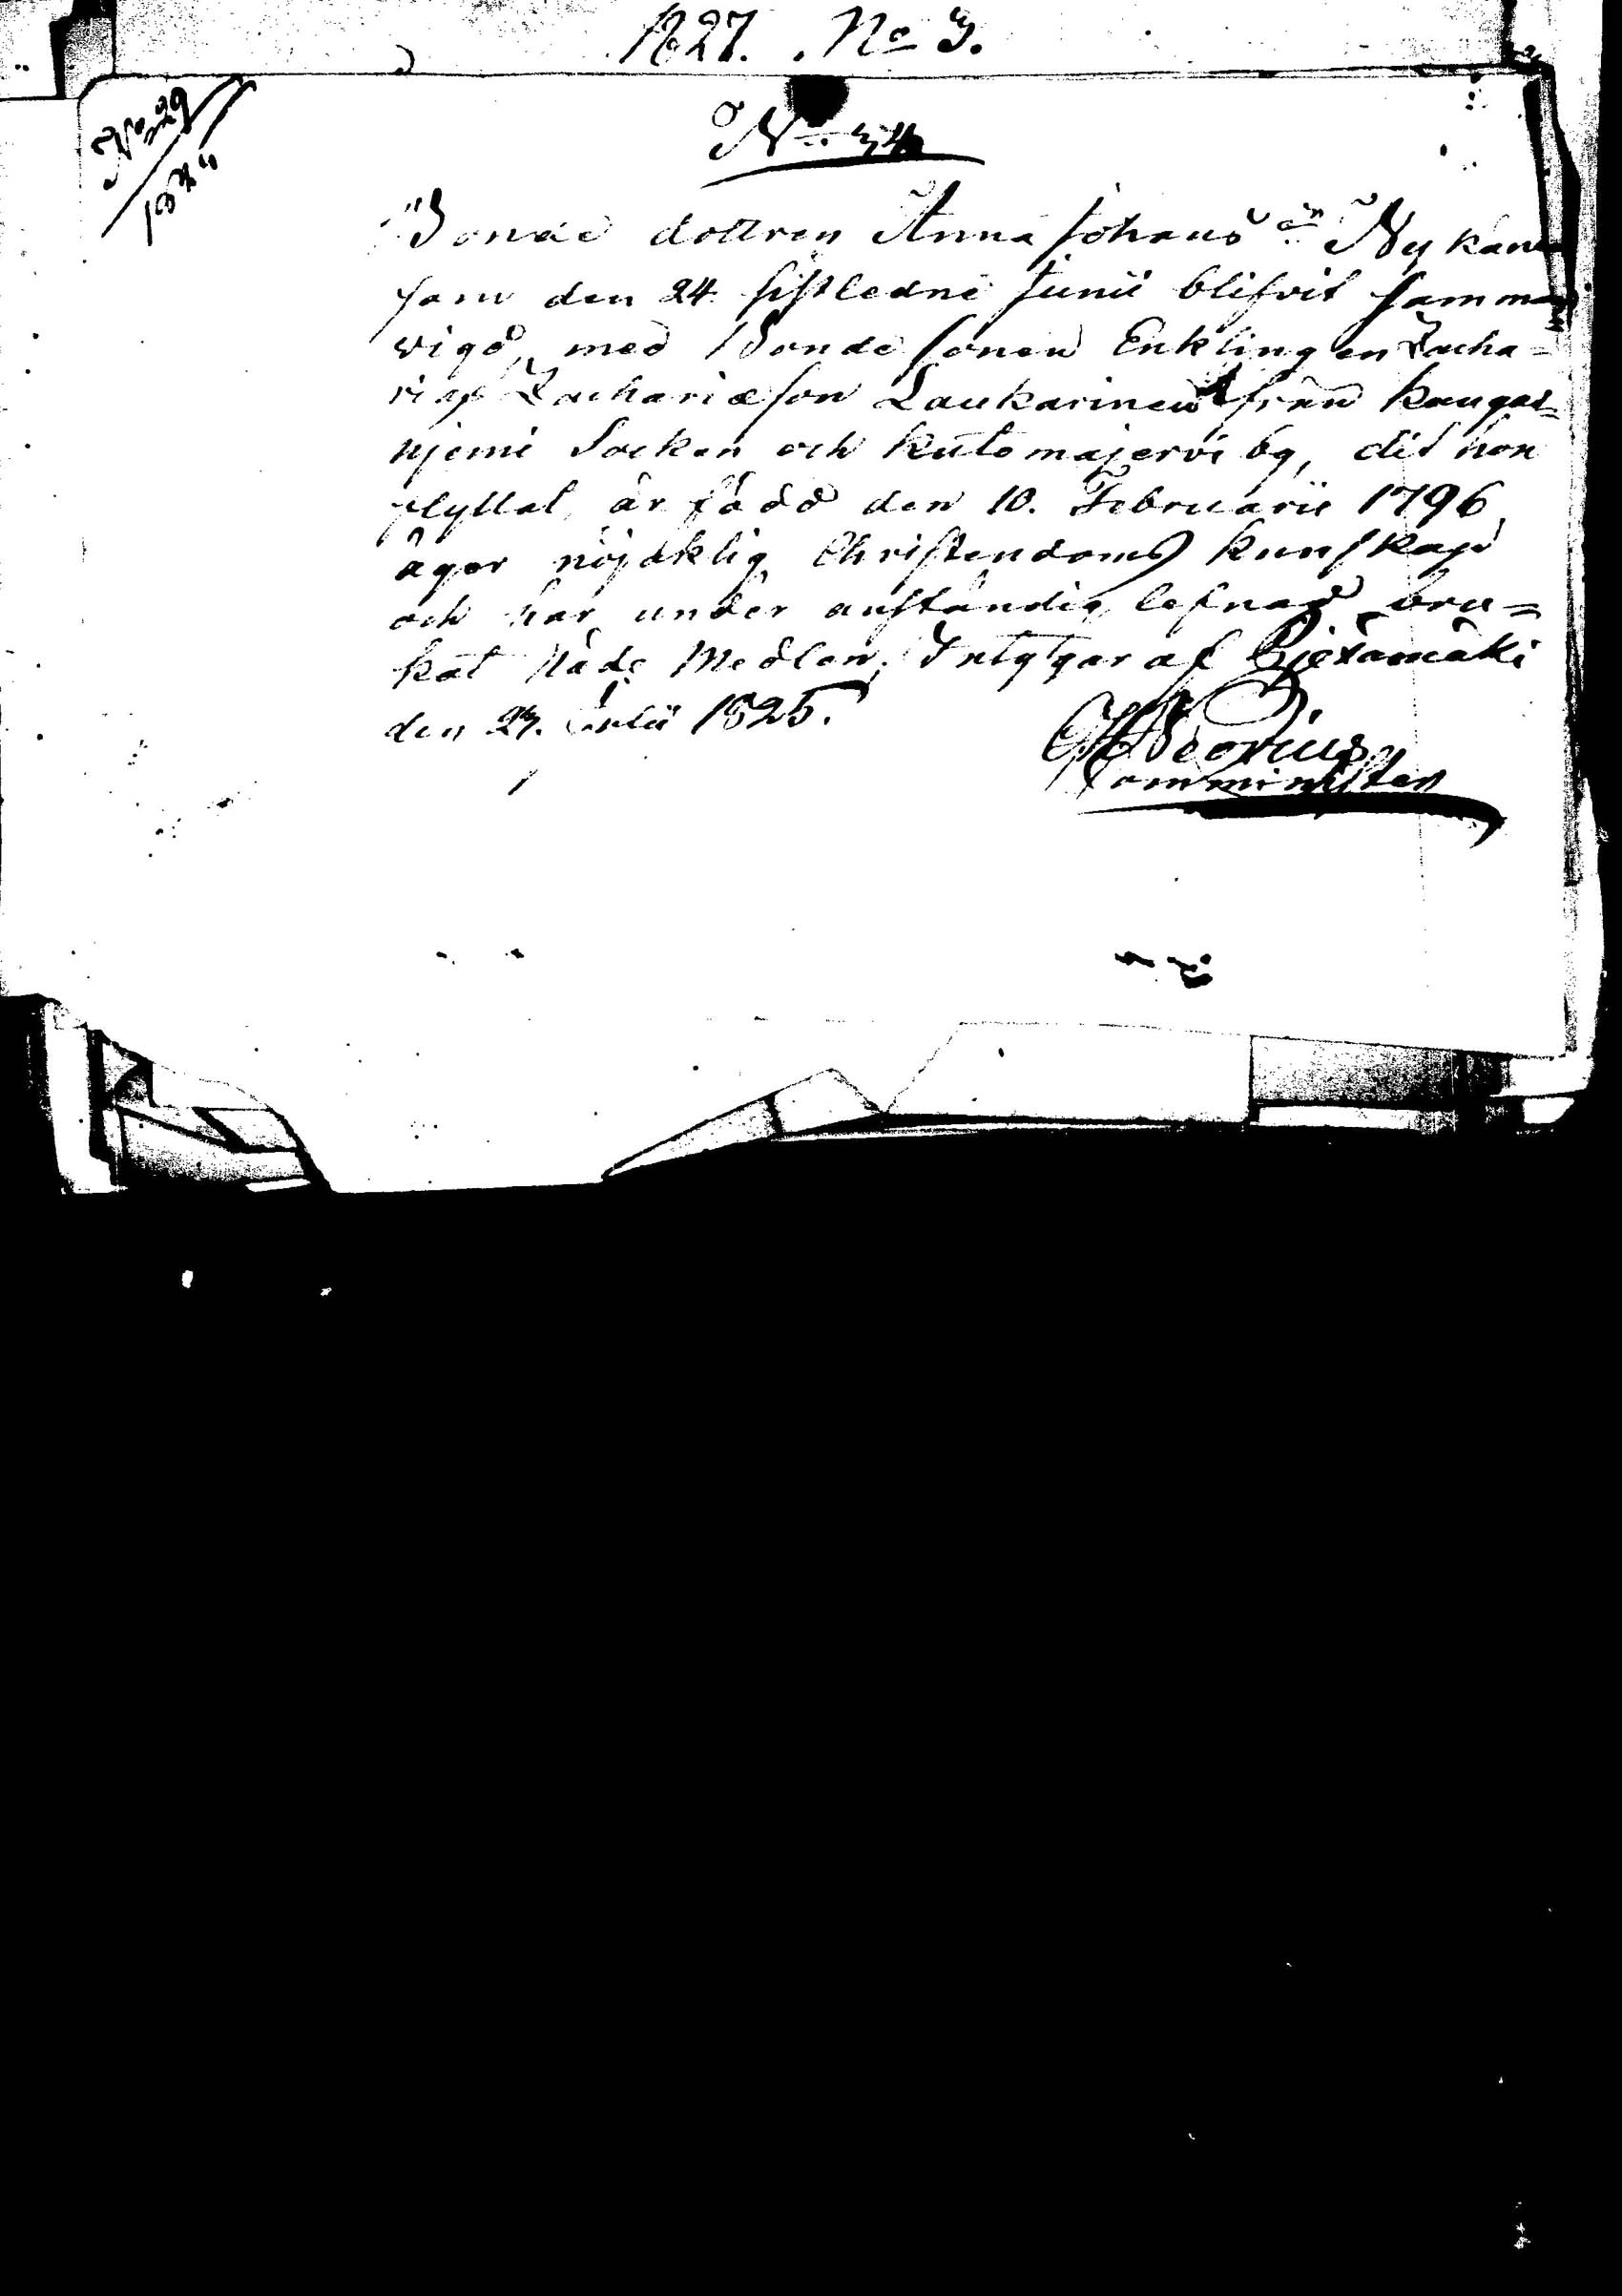 1827. No 3.
No 29
No 34
Bonde dottren Anna Johans dr Nykän
som den 24 sistledne Junii blifvit samman
vigd med Bonde sonen Enklingen Zacha=
rias Zachariæson Laukarinen från Kangas=
njemi Socken och Kutemajervi by, dit hon
flyttat, är född den 10. Februarii 1796
äger nöjaktig Christendoms kunskap
och har under anständig lefnad bru=
kat Nåde Medlen; Intygar af Pjexämäki
den 23. Julii 1825.
Neovius
Comminister